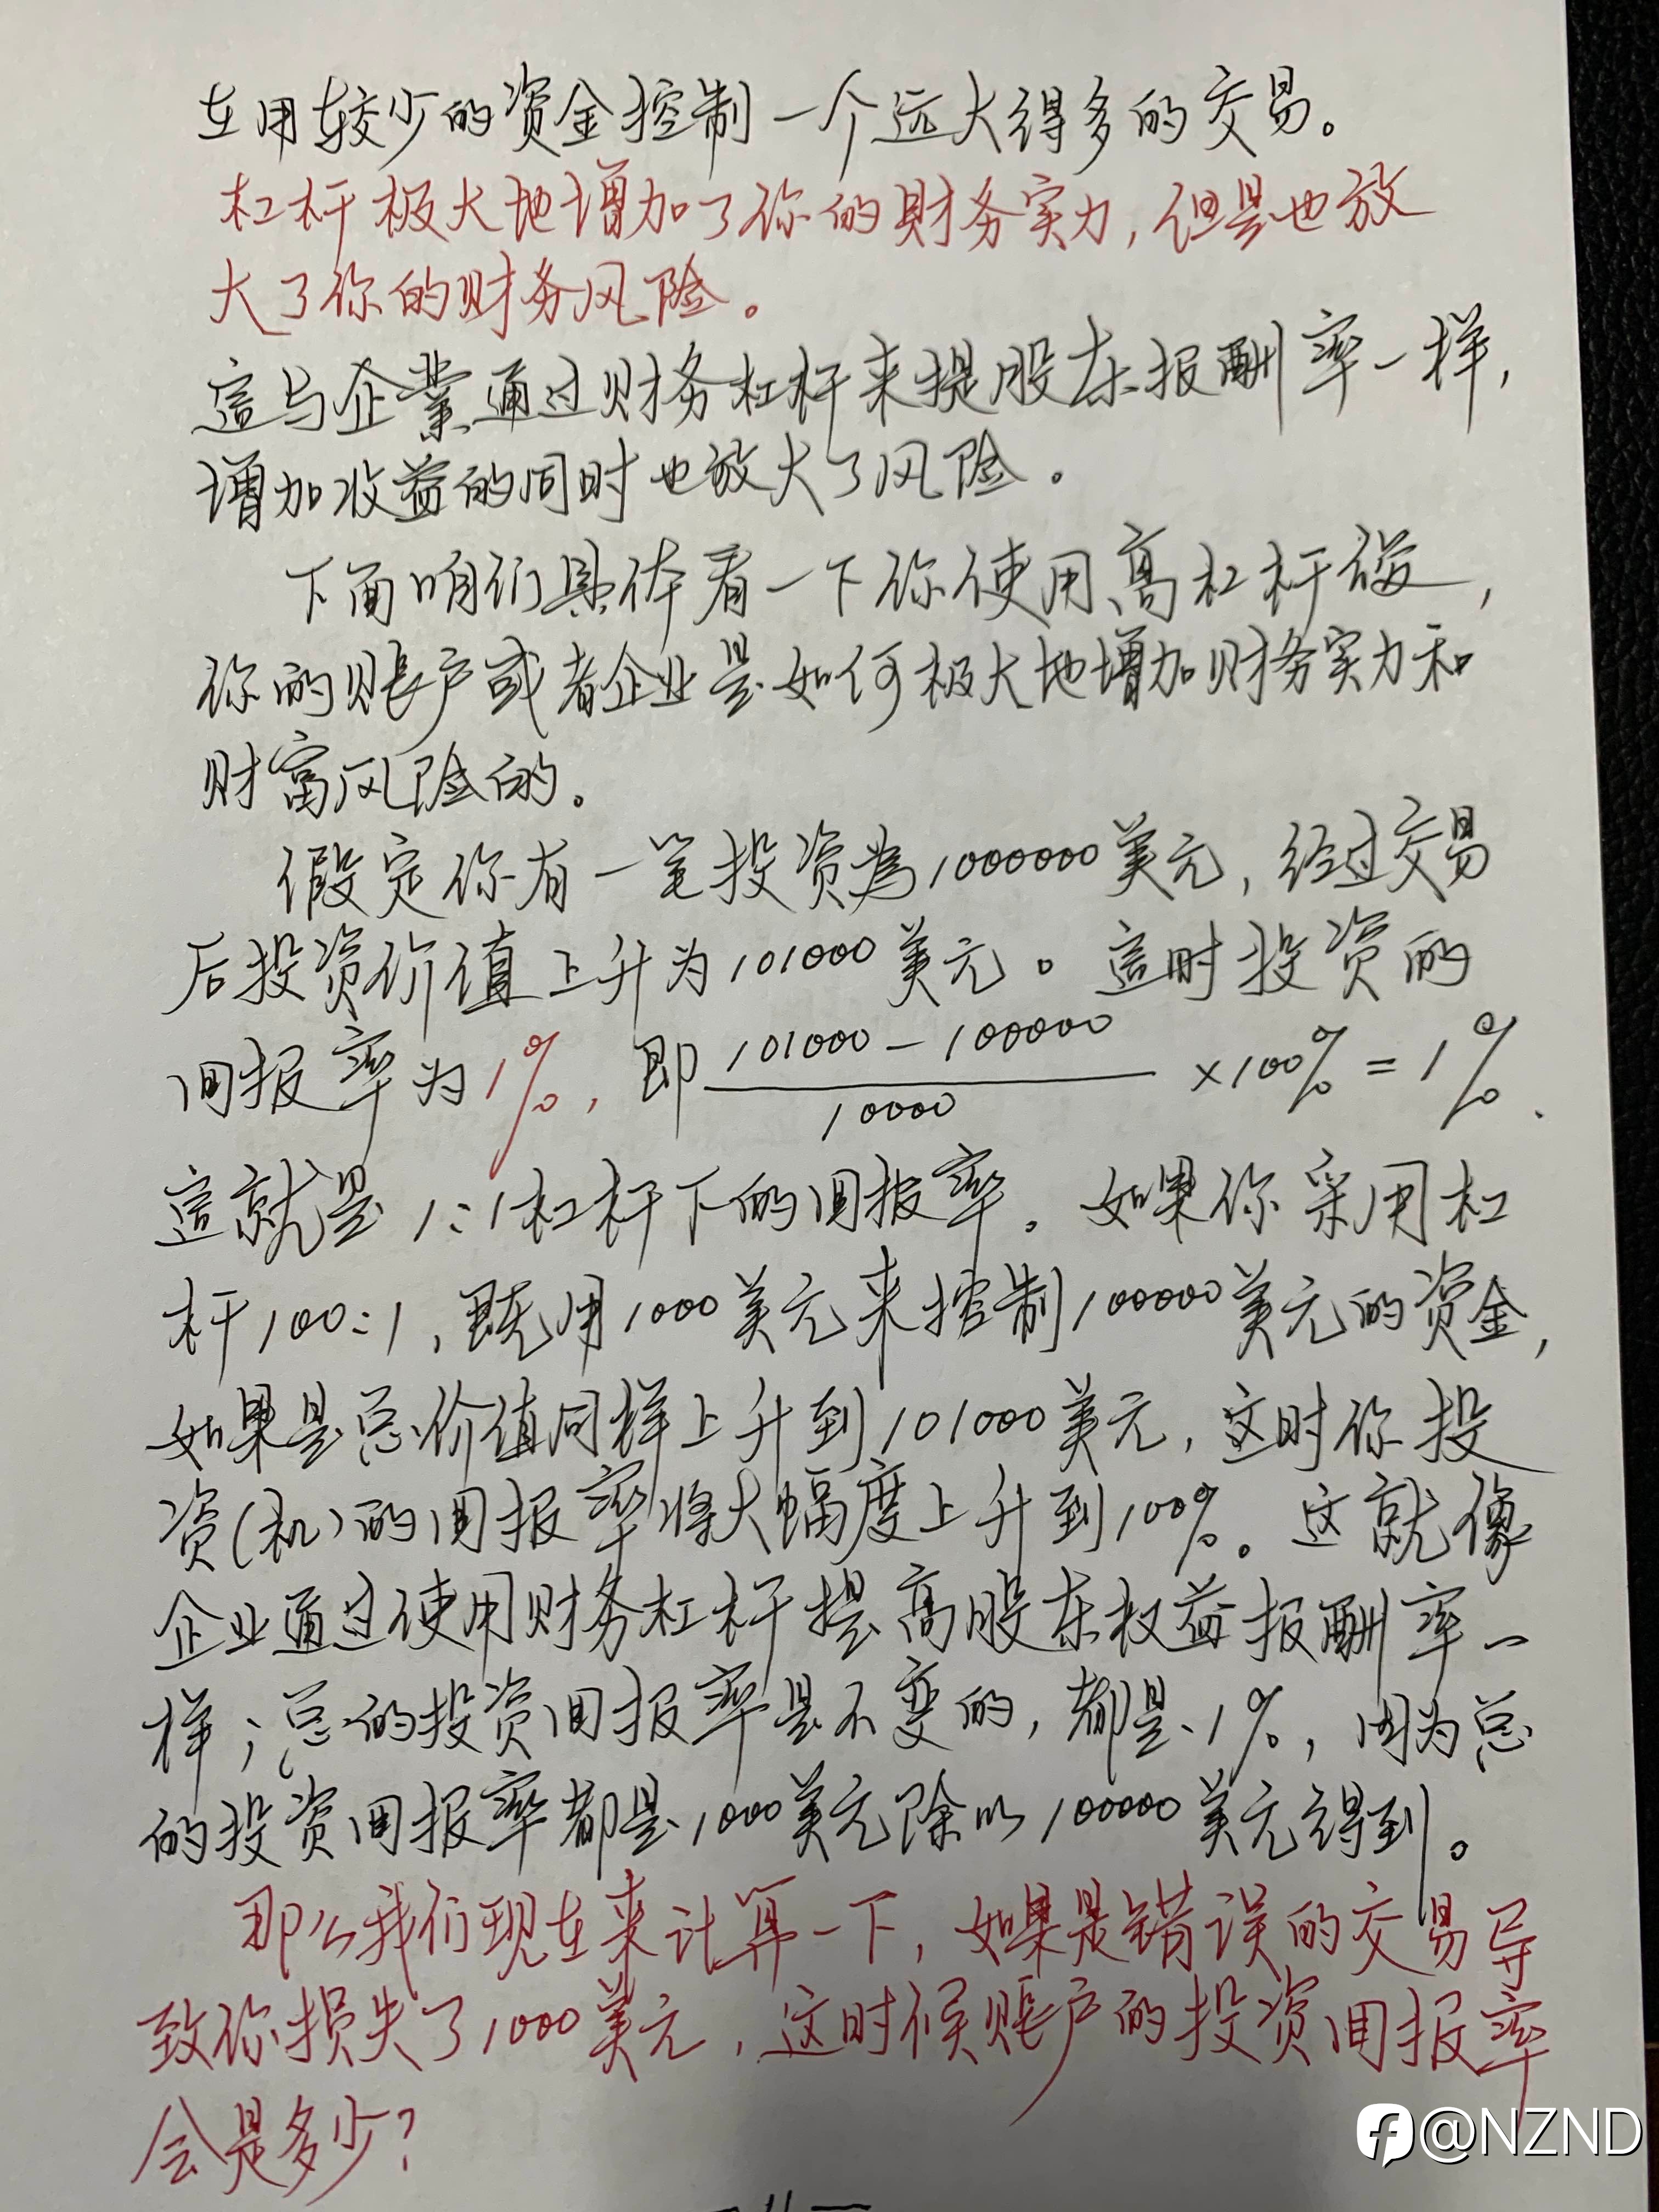 在用较少的资金控制一个远大得多的交易。
杠杆极大地增加了你的财务实力,但是也放
大了你的财务风险。
這与企業通过财务杠杆来提股东报酬率一样,
增加收益的同时也放大了风险。
下面咱们具体看一下你使用高杠杆后,
你的账户或者企业是如何极大地增加财务实力和
财富风险的。
假定你有一笔投资為1000000美元,经过交易
后投资价值上升为101000美元。這时投资的
回报率为1%,即 101000-100000
10000
×100%=1%.
這就是1:1杠杆下的回报率。如果你采用杠
杆100:1,既用1000美元来控制100000美元的资金,
如果是总价值同样上升到101000美元,这时你投
资(机)的回报率将大幅度上升到100%。这就像
企业通过使用财务杠杆提高股东权益报酬率一
样;总的投资回报率是不变的,都是1%,因为总
的投资回报率都是1000美元除以100000美元得到。
那么我们现在来计算一下,如果是错误的交易导
致你损失了1000美元,这时候账户的投资回报率
会是多少?
@NZND